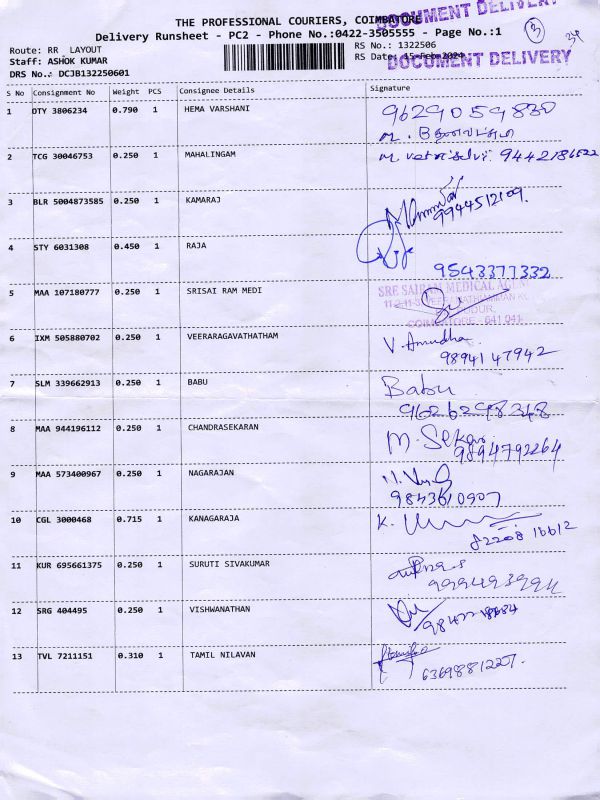 DOCUMENT DELIVERY
THE PROFESSIONAL COURIERS, COIMBATORE
3
Delivery Runsheet - PC2 - Phone No.:0422-3505555 - Page No.:1
Route: RR LAYOUT
RS No.: 1322506
Staff: ASHOK KUMAR
RS Date: 15-Feb-2024
DOCUMENT DELIVERY
DRS No.: DCJB132250601
S No Consignment No Weight PCS Consignee Details Signature
1 DTY 3806234 0.790 1 HEMA VARSHANI 9629059830
M.
2 TCG 30046753 0.250 1 MAHALINGAM M 9442186522
3 BLR 5004873585 0.250 1 KAMARAJ
9944512109.
4 STY 6031308 0.450 1 RAJA
9543377332
5 MAA 107180777 0.250 1 SRISAI RAM MEDI SRE SAIRAM MEDICAL AGENCY
COIMBATORE - 641 041
6 IXM 505880702 0.250 1 VEERARAGAVATHATHAM V. Amudha
9894147942
7 SLM 339662913 0.250 1 BABU Babu
9626298348
8 MAA 944196112 0.250 1 CHANDRASEKARAN M. Sekar
9894792264
9 MAA 573400967 0.250 1 NAGARAJAN
9843610907
10 CGL 3000468 0.715 1 KANAGARAJA K.
82208 16612
11 KUR 695661375 0.250 1 SURUTI SIVAKUMAR
12 SRG 404495 0.250 1 VISHWANATHAN
13 TVL 7211151 0.310 1 TAMIL NILAVAN
6369881227.